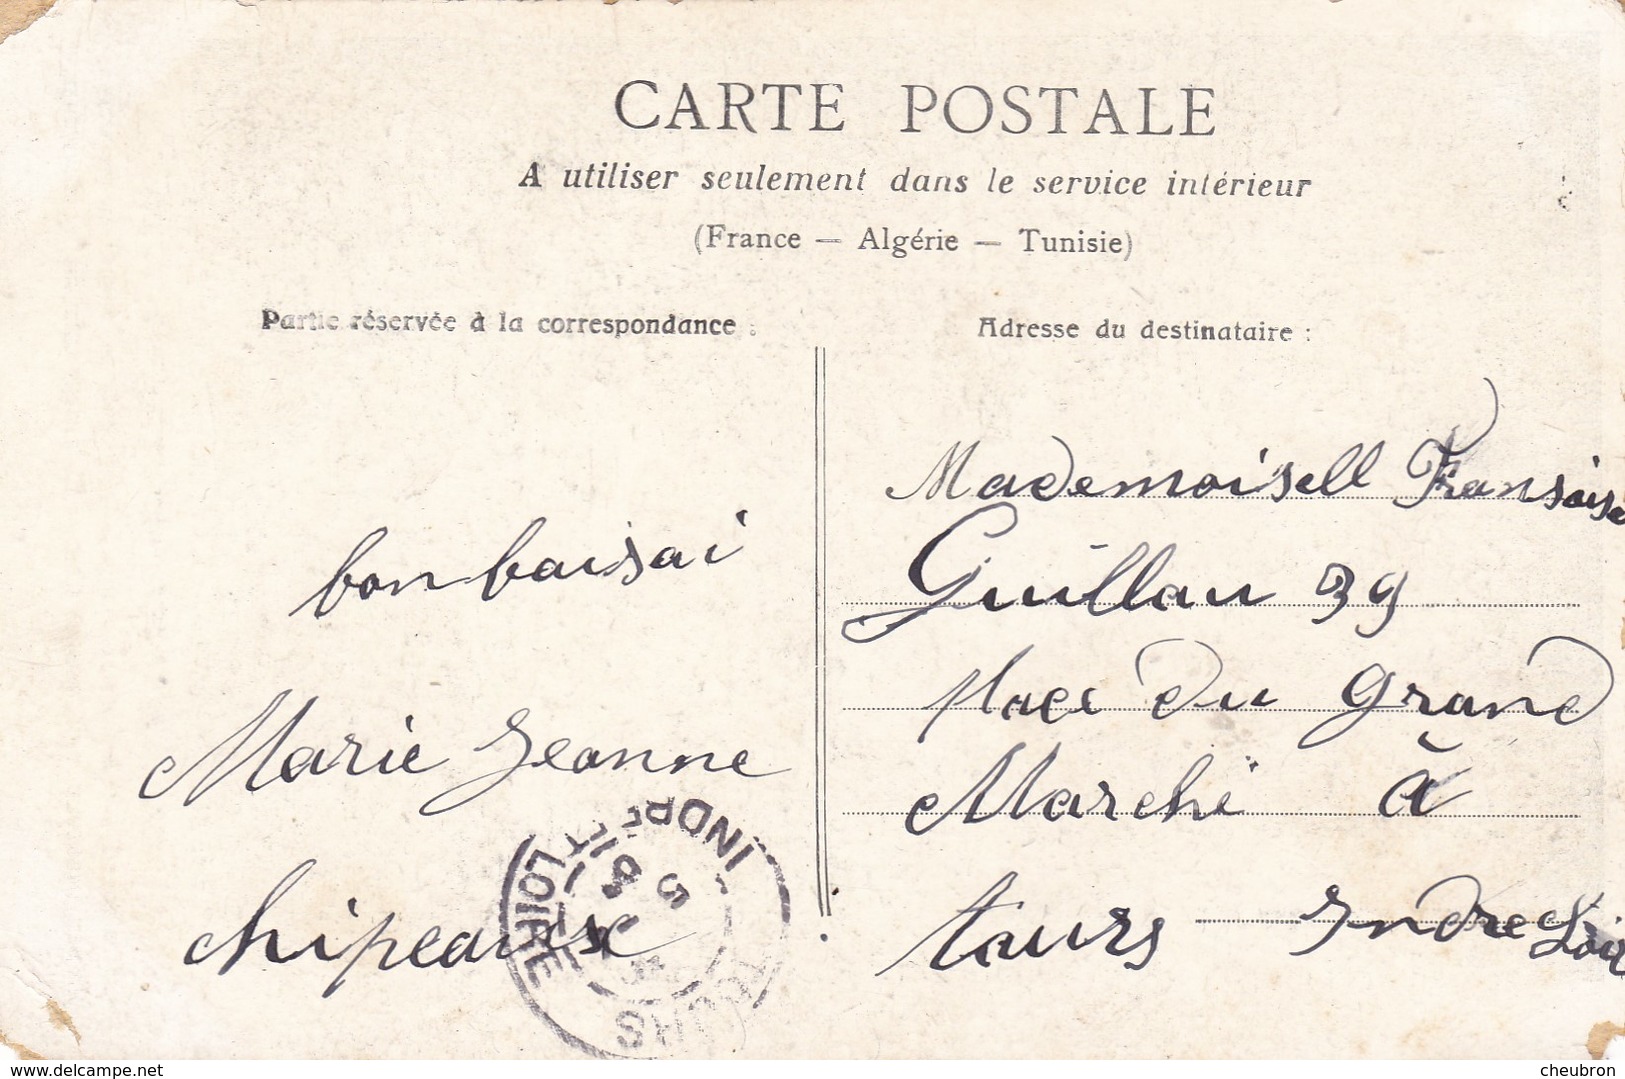 CARTE POSTALE
A utiliser seulement dans le service intérieur
(France — Algérie — Tunisie)
Partie réservée à la correspondance :
Adresse du destinataire :
bon baisai
Marie Jeanne
chipeaux
Mademoisell Fransoise
Guillau 39
place du grand
Marchi à
tours Indre Loir
INDRE ET LOIRE
TOURS
5
www.delcampe.net
cheubron